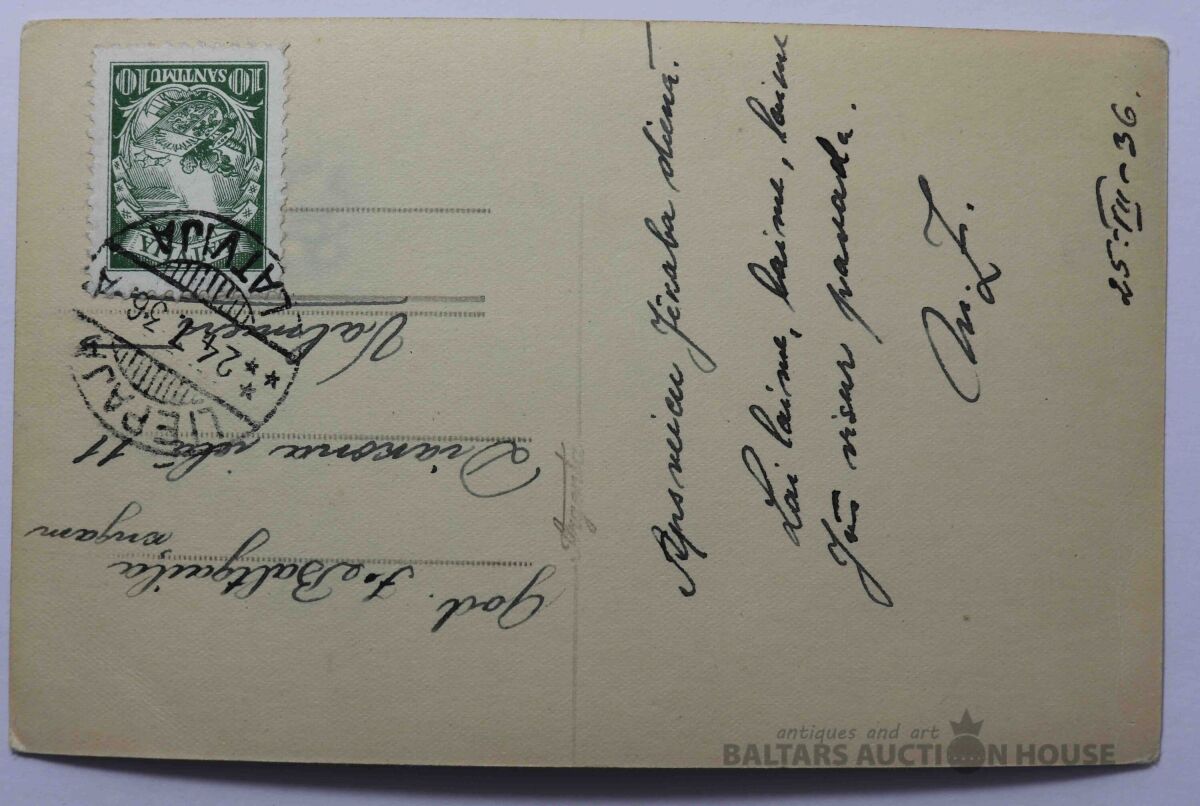 Apsveicu Jēkaba dienā.
Lai laime, laime, laime
Jūs visur pavada.
M. Z.
25.-VII-36.
God. J. Baltgaila
kngam
iela 11
Valmierā
10 SANTIMU 10
LATVIJA
LIEPAJA
24.7.36. A
LATVIJA
antiques and art
BALTARS AUCTION HOUSE